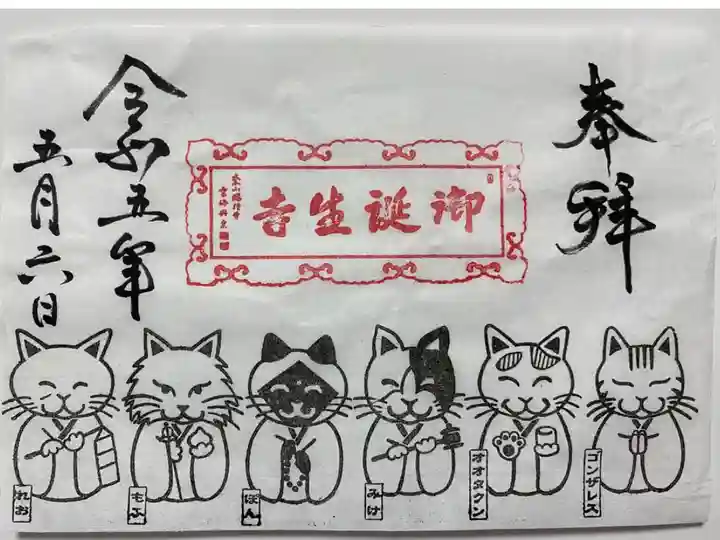 奉拝
御誕生吉
令和五年
五月六日
れお
もふ
ぽん
みけ
オオタクン
ゴンザレス